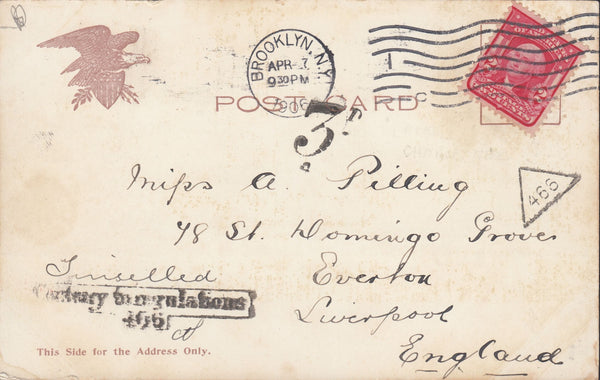 BROOKLYN, N.Y.
APR 7
9 30 PM
POST CARD
3D
Miss A. Pilling
466
48 St. Domingo Grove
Tinselled
Everton
Contrary to regulations
466
Liverpool
This Side for the Address Only.
England